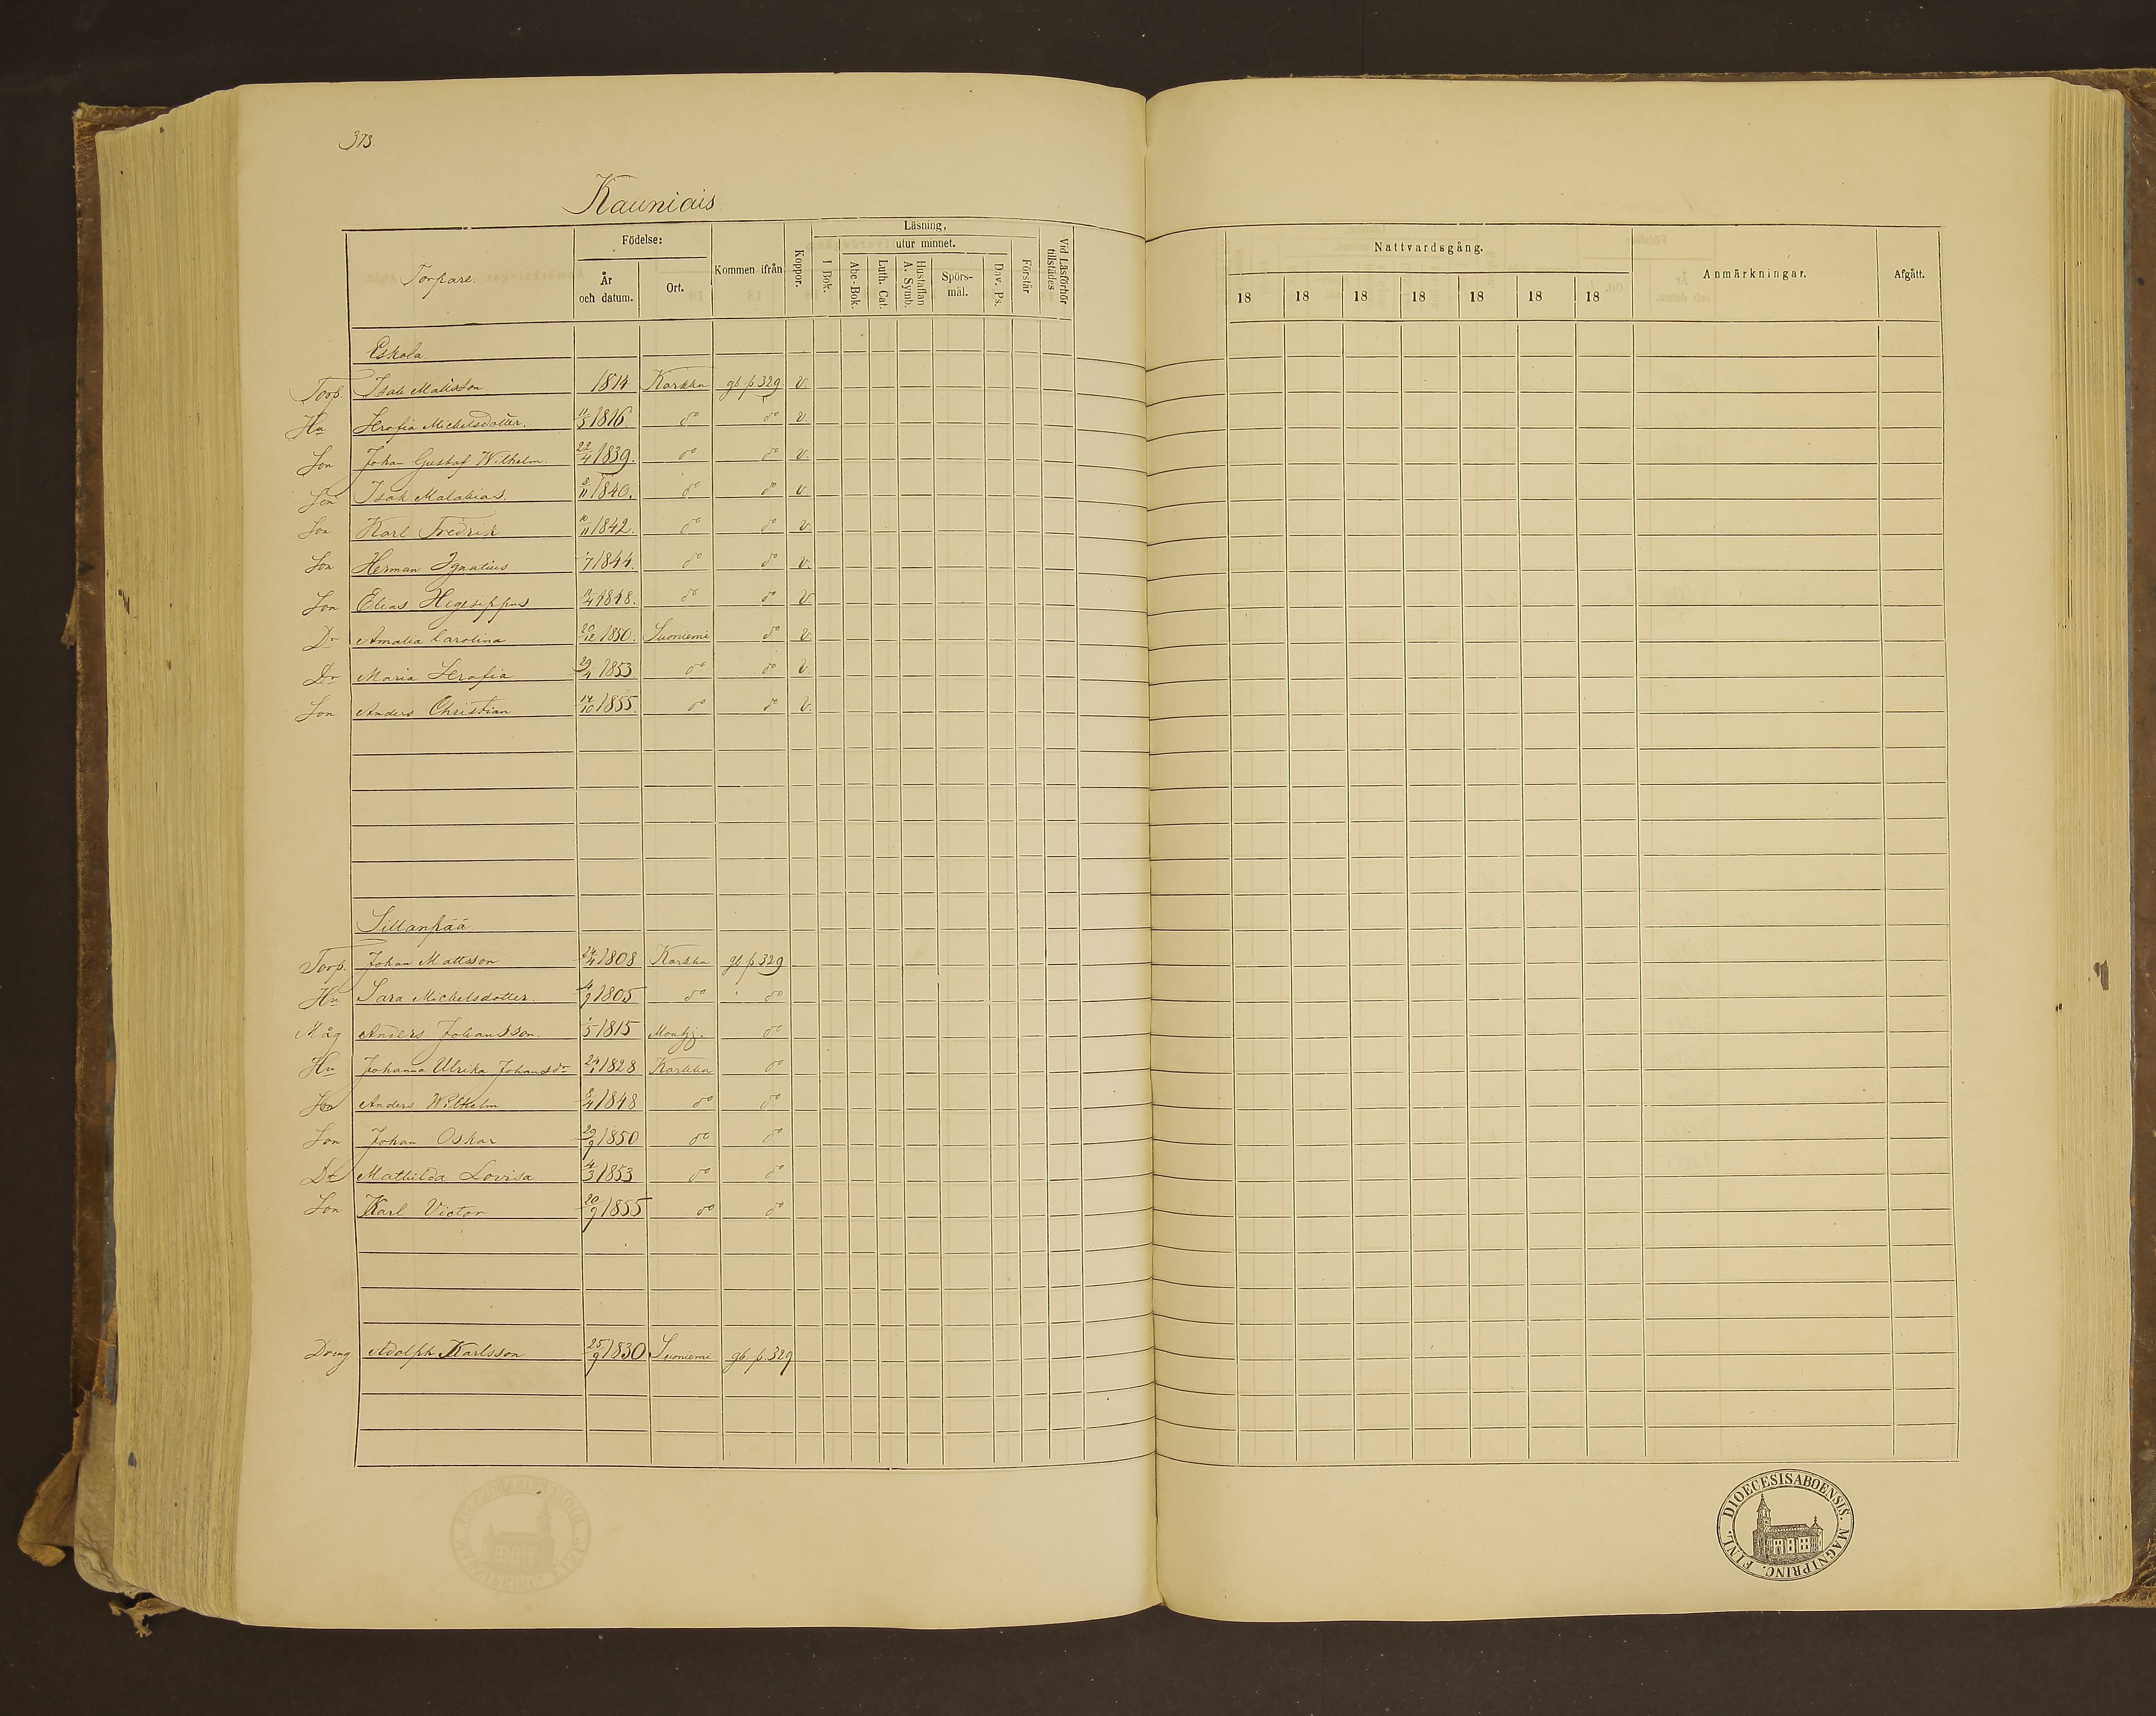 373.
Kauniais
Torpare. Födelse: År och datum. Ort. Kommen ifrån Koppor. Läsning, I Bok. utur minnet. Abc-Bok. Luth. Cat. Hustaflan A. Symb. Spörs-mål. Dav. Ps. Förstår Vid Läsförhör tillstädes Nattvardsgång. 18 18 18 18 18 18 18 Anmärkningar. Afgått.
Eskola.
Torp. Isak Mattsson 1814 Karkku gb p 329 v.
Hu Serafia Michelsdotter. 11/5 1816 do do v.
Son Johan Gustaf Wilhelm. 22/4 1839. do do v.
Son Isak Malakias. 11 1840. do do v
Son Karl Fredrik 10/11 1842. do do v.
Son Herman Ignatius 1/7 1844. do do v.
Son Elias Hegesippus 11/4 1848. do do v
Dr Amalia Carolina 20/12 1850. Suoniemi do v
Dr Maria Serafia 29/4 1853 do do v.
Son Anders Christian 14/10 1855. do do v.
Sillanpää
Torp. Johan Mattsson 24/4 1808 Karkku gb p 329
Hu Sara Michelsdotter. 4/9 1805 do do
Måg Anders Johansson. 1/5 1815 do
Hu Johanna Ulrika Johansdr 24/1 1828 Karkku do
Son Anders Wilhelm 8/4 1848 do do
Son Johan Oskar 29/9 1850 do do
Dr Mathilda Lovisa 4/3 1853 do do
Son Karl Victor 20/9 1855 do do
Dreng Adolph Karlsson 25/9 1830 Suoniemi gb p 329
DIOECESIS ABOENSIS. MAGNI PRINC. FINL.